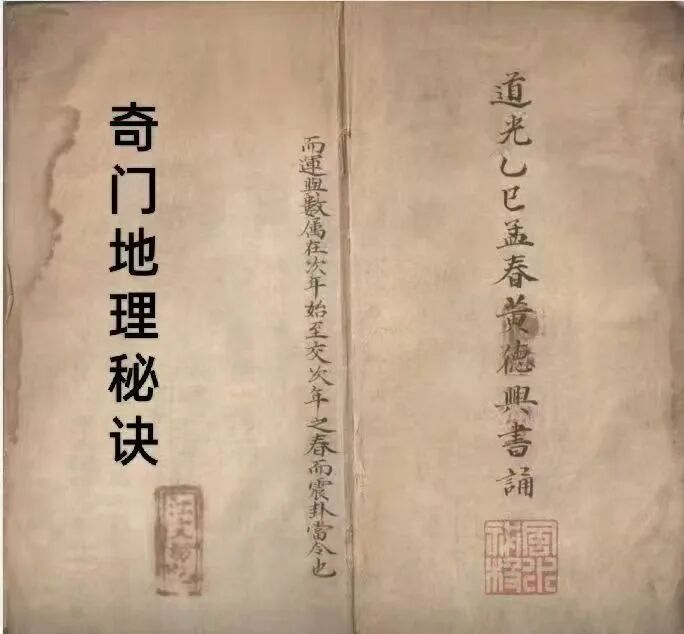 道光乙巳孟春黄德興書誦
而運與數属在次年始至交次年之春而震卦當令也
奇门地理秘诀